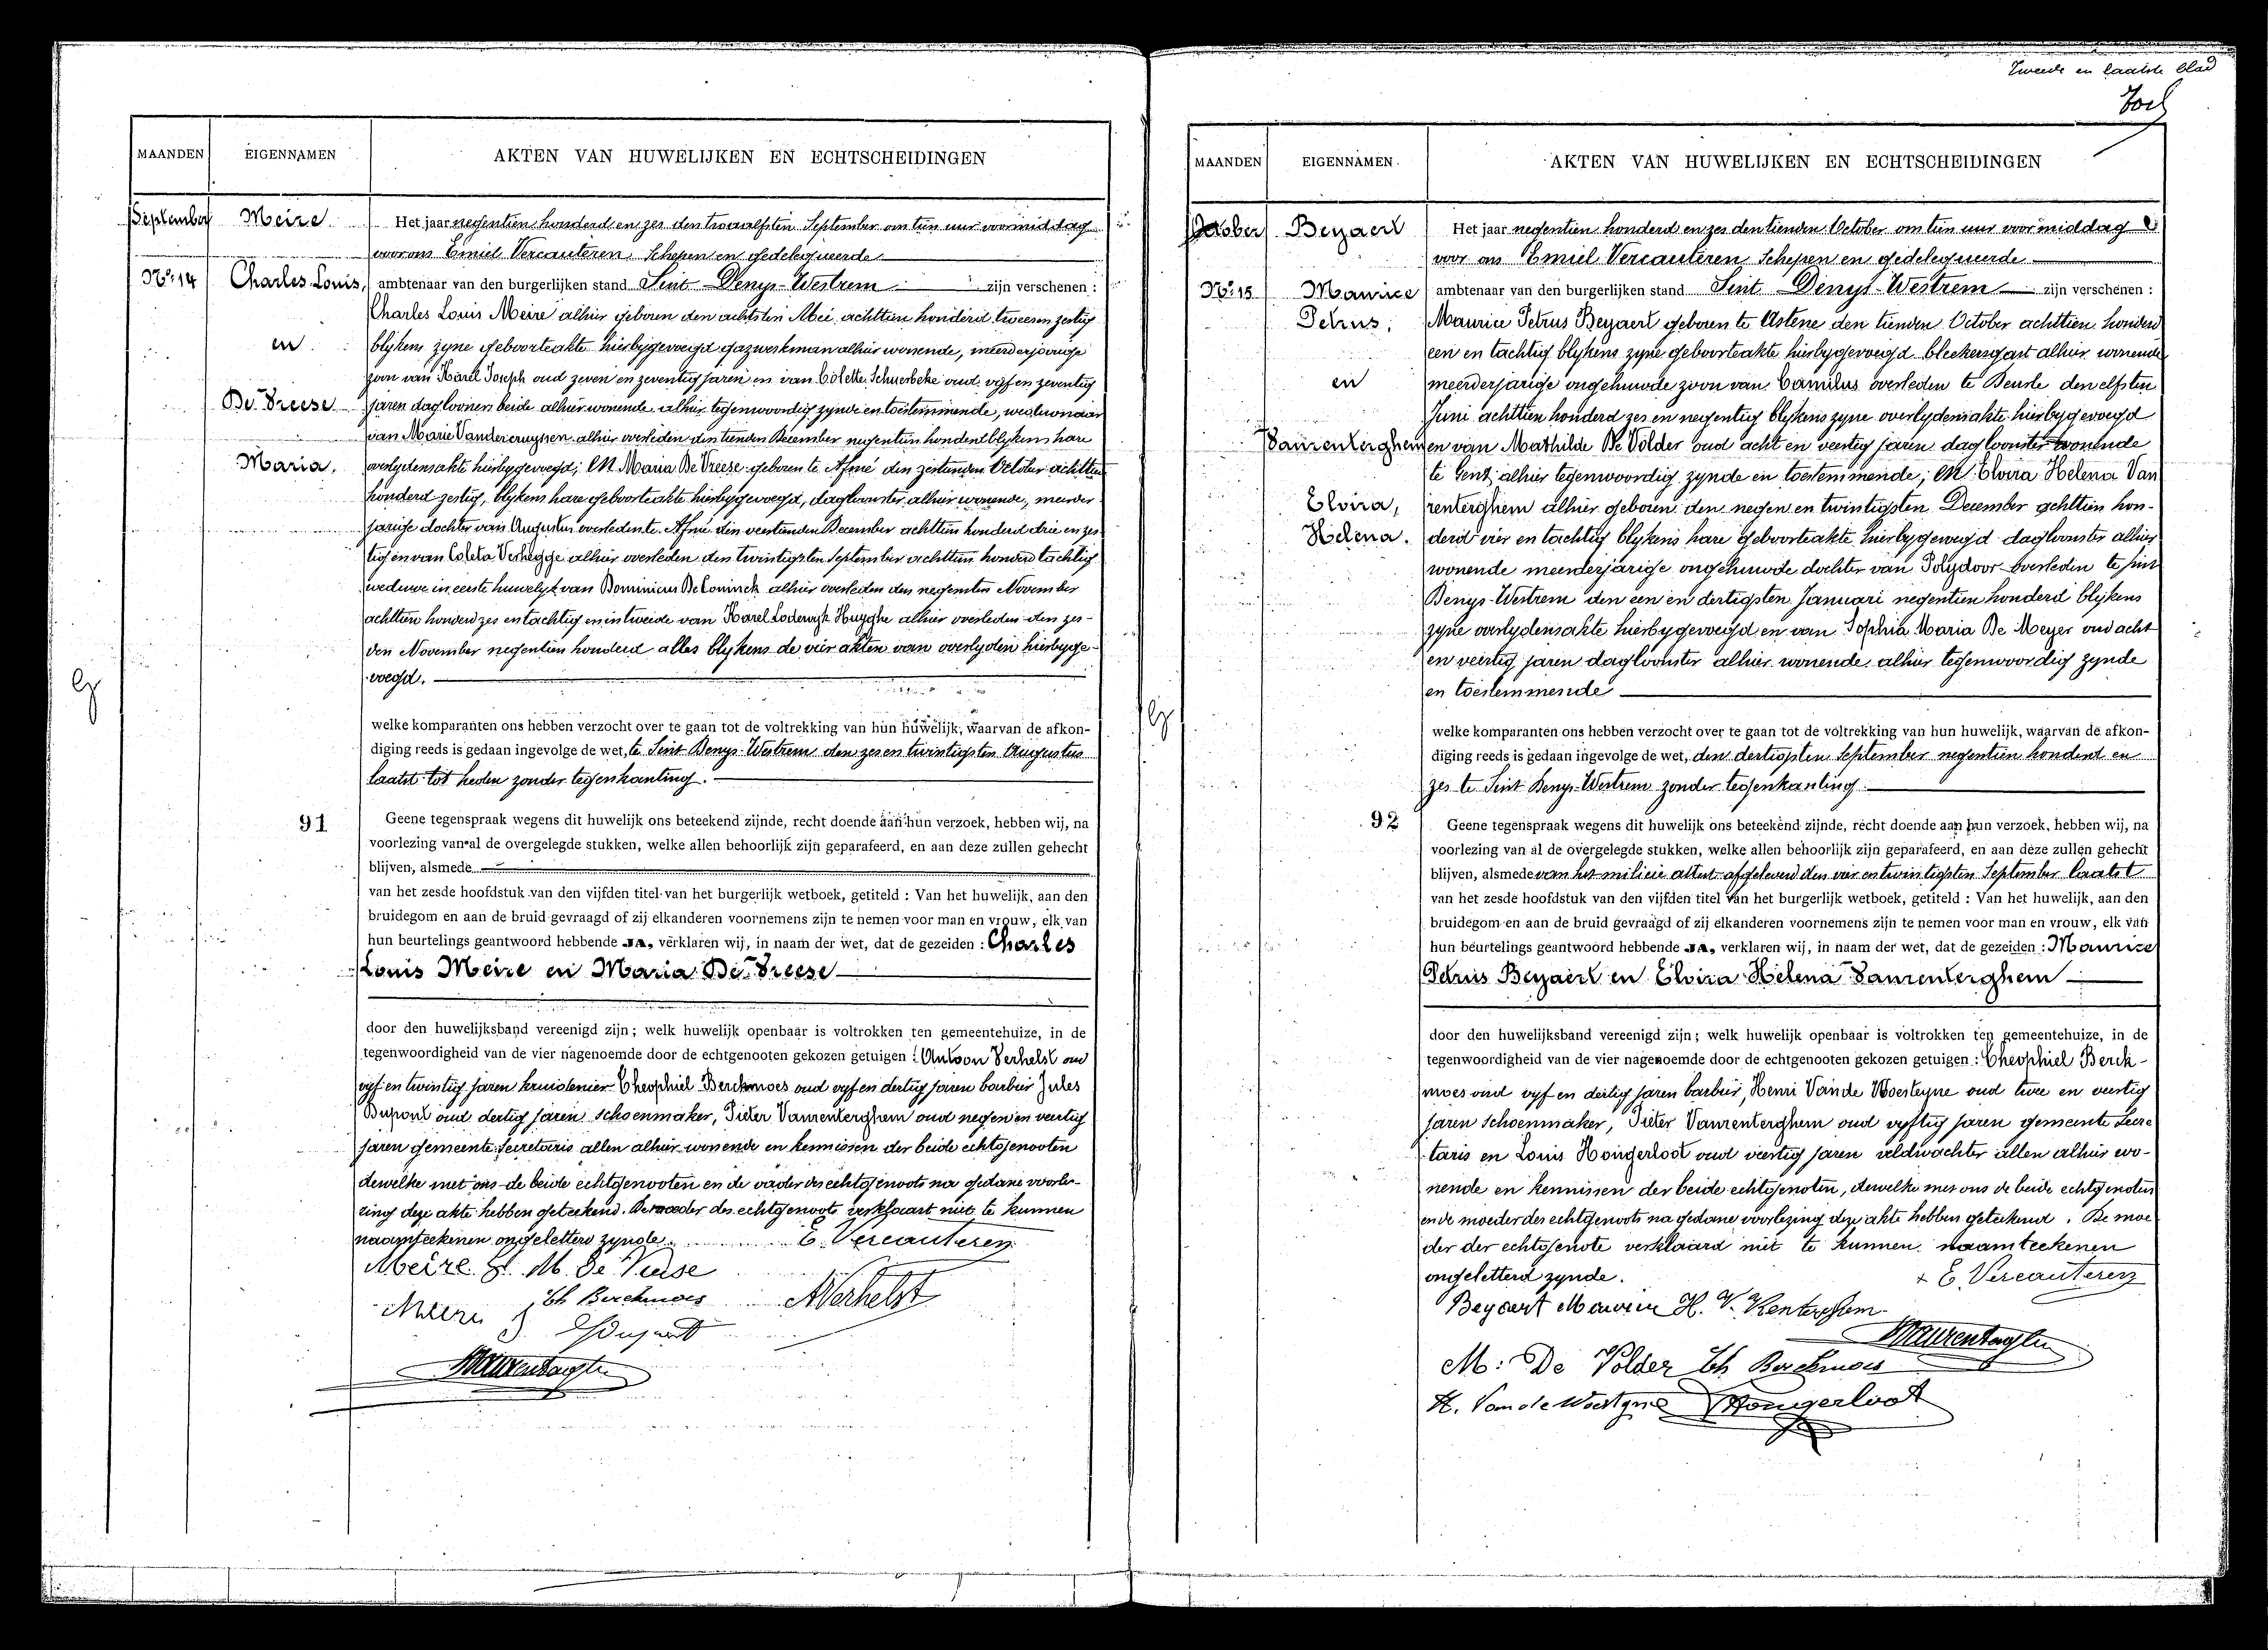 Tweede en laatste blad
MAANDEN
EIGENNAMEN
AKTEN VAN HUWELIJKEN EN ECHTSCHEIDINGEN
September
Meire
Nº 14
Charles Louis,
en
De Vreese
Maria.
Het jaar negentien honderd en zes den twaalfsten September om tien uur voormiddag
voor ons Emiel Vercauteren, Schepen en gedelegueerde
ambtenaar van den burgerlijken stand Sint Denys-Westrem zijn verschenen :
Charles Louis Meire alhier geboren den achtsten Mei achttien honderd twee en zestig
blykens zyne geboorteakte hierbygevoegd gazwerkman alhier wonende, meerderjarige
zoon van Karel Joseph oud zeven en zeventig jaren en van Colette Schuerbeke oud vyf en zeventig
jaren daglooners beide alhier wonende alhier tegenwoordig zynde en toestemmende, weduwnaar
van Marie Vandercruyssen alhier overleden den tienden December negentien honderd blykens hare
overlydensakte hierbygevoegd; En Maria De Vreese geboren te Afsné den zestienden October achttien
honderd zestig, blykens hare geboorteakte hierbygevoegd, dagloonster alhier wonende, meerder
jarige dochter van Augustus overleden te Afsné den veertienden December achttien honderd drie en zes
tig en van Coleta Verhegge alhier overleden den twintigsten September achttien honderd tachtig
weduwe in eerste huwelyk van Dominicus De Coninck alhier overleden den negensten November
achttien honderd zes en tachtig en in tweede van Karel Lodewyk Huyghe alhier overleden den zes-
den November negentien honderd alles blykens de vier akten van overlyden hierbyge
voegd.
welke komparanten ons hebben verzocht over te gaan tot de voltrekking van hun huwelijk, waarvan de afkon-
diging reeds is gedaan ingevolge de wet, te Sint Denys-Westrem den zes en twintigsten Augustus
laatst tot heden zonder tegenkanting.
91
Geene tegenspraak wegens dit huwelijk ons beteekend zijnde, recht doende aan hun verzoek, hebben wij, na
voorlezing van al de overgelegde stukken, welke allen behoorlijk zijn geparafeerd, en aan deze zullen gehecht
blijven, alsmede
van het zesde hoofdstuk van den vijfden titel van het burgerlijk wetboek, getiteld : Van het huwelijk, aan den
bruidegom en aan de bruid gevraagd of zij elkanderen voornemens zijn te nemen voor man en vrouw, elk van
hun beurtelings geantwoord hebbende JA, verklaren wij, in naam der wet, dat de gezeiden : Charles
Louis Meire en Maria De Vreese
door den huwelijksband vereenigd zijn ; welk huwelijk openbaar is voltrokken ten gemeentehuize, in de
tegenwoordigheid van de vier nagenoemde door de echtgenooten gekozen getuigen : Antoon Verhelst oud
vyf en twintig jaren kruidenier Theophiel Berckmoes oud vyf en dertig jaren barbier Jules
Dupont oud dertig jaren Schoenmaker, Pieter Vanrenterghem oud negen en veertig
jaren gemeente secretaris allen alhier wonende en kennissen der beide echtgenooten
dewelke met ons de beide echtgenooten en de vader des echtgenoots na gedane voorle-
zing deze akte hebben geteekend. De moeder des echtgenoots verklaart niet te kunnen
naamteekenen ongeletterd zynde. E. Vercauteren
Meire M. De Vreese
Th Berckmoes AVerhelst
Dupont
Vanrenterghem
MAANDEN
EIGENNAMEN
AKTEN VAN HUWELIJKEN EN ECHTSCHEIDINGEN
October
Beyaert
Nº 15
Maurice
Petrus,
en
Vanrenterghem
Elvira,
Helena.
Het jaar negentien honderd en zes den tienden October om tien uur voormiddag
voor ons Emiel Vercauteren, Schepen en gedelegueerde
ambtenaar van den burgerlijken stand Sint Denys-Westrem zijn verschenen :
Maurice Petrus Beyaert geboren te Astene den tienden October achttien honderd
een en tachtig blykens zyne geboorteakte hierbygevoegd bleekersgast alhier wonende
meerderjarige ongehuwde zoon van Camilus overleden te Deurle den elfsten
Juni achttien honderd zes en negentig blykens zyne overlydensakte hierbygevoegd
en van Mathilde De Volder oud acht en veertig jaren dagloonster wonende
te Gent, alhier tegenwoordig zynde en toestemmende; En Elvira Helena Van
renterghem alhier geboren den negen en twintigsten December achttien hon-
derd vier en tachtig blykens hare geboorteakte hierbygevoegd dagloonster alhier
wonende meerderjarige ongehuwde dochter van Polydoor overleden te Sint
Denys-Westrem den een en dertigsten Januari negentien honderd blykens
zyne overlydensakte hierbygevoegd en van Sophia Maria De Meyer oud acht
en veertig jaren dagloonster alhier wonende alhier tegenwoordig zynde
en toestemmende
welke komparanten ons hebben verzocht over te gaan tot de voltrekking van hun huwelijk, waarvan de afkon-
diging reeds is gedaan ingevolge de wet, den dertigsten September negentien honderd en
zes te Sint Denys-Westrem zonder tegenkanting.
92
Geene tegenspraak wegens dit huwelijk ons beteekend zijnde, recht doende aan hun verzoek, hebben wij, na
voorlezing van al de overgelegde stukken, welke allen behoorlijk zijn geparafeerd, en aan deze zullen gehecht
blijven, alsmede van het milicie attest afgeleverd den vier en twintigsten September laatst
van het zesde hoofdstuk van den vijfden titel van het burgerlijk wetboek, getiteld : Van het huwelijk, aan den
bruidegom en aan de bruid gevraagd of zij elkanderen voornemens zijn te nemen voor man en vrouw, elk van
hun beurtelings geantwoord hebbende JA, verklaren wij, in naam der wet, dat de gezeiden : Maurice
Petrus Beyaert en Elvira Helena Vanrenterghem
door den huwelijksband vereenigd zijn ; welk huwelijk openbaar is voltrokken ten gemeentehuize, in de
tegenwoordigheid van de vier nagenoemde door de echtgenooten gekozen getuigen : Theophiel Berck-
moes oud vyf en dertig jaren barbier, Henri Van de Woesteyne oud twee en veertig
jaren Schoenmaker, Pieter Vanrenterghem oud vyftig jaren gemeente Secre
taris en Louis Hongerloot oud veertig jaren veldwachter allen alhier wo-
nende en kennissen der beide echtgenoten, dewelke met ons de beide echtgenoten
en de moeder des echtgenoots na gedane voorlezing deze akte hebben geteekend. De moe
der der echtgenote verklaard niet te kunnen naamteekenen
ongeletterd zynde. E. Vercauteren
Beyaert Maurice H. V. Renterghem
Vanrenterghem
M. De Volder Th Berckmoes
H. Van de Woestyne Hongerloot